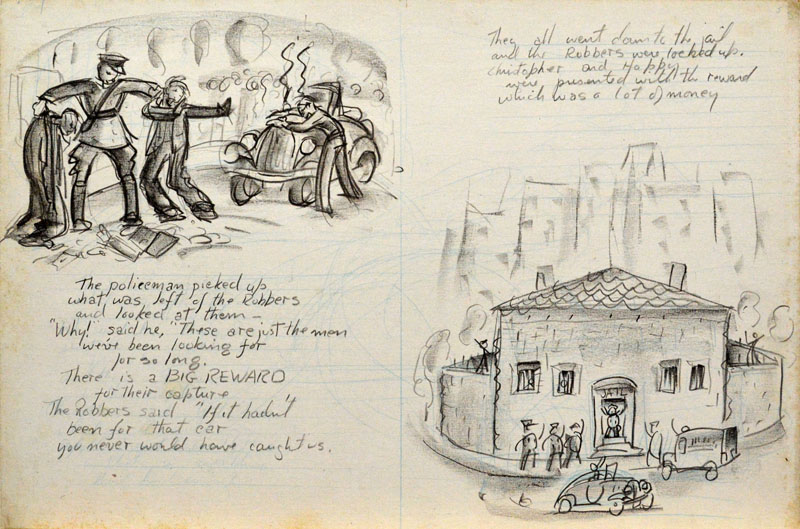 The policeman picked up
what was left of the Robbers
and looked at them –
"Why!" said he, "These are just the men
we've been looking for
for so long.
There is a BIG REWARD
for their capture
The Robbers said "If it hadn't
been for that car
you never would have caught us.
They all went down to the jail
and the Robbers were locked up.
Christopher and Hoppy
were presented with the reward
which was a lot of money
JAIL